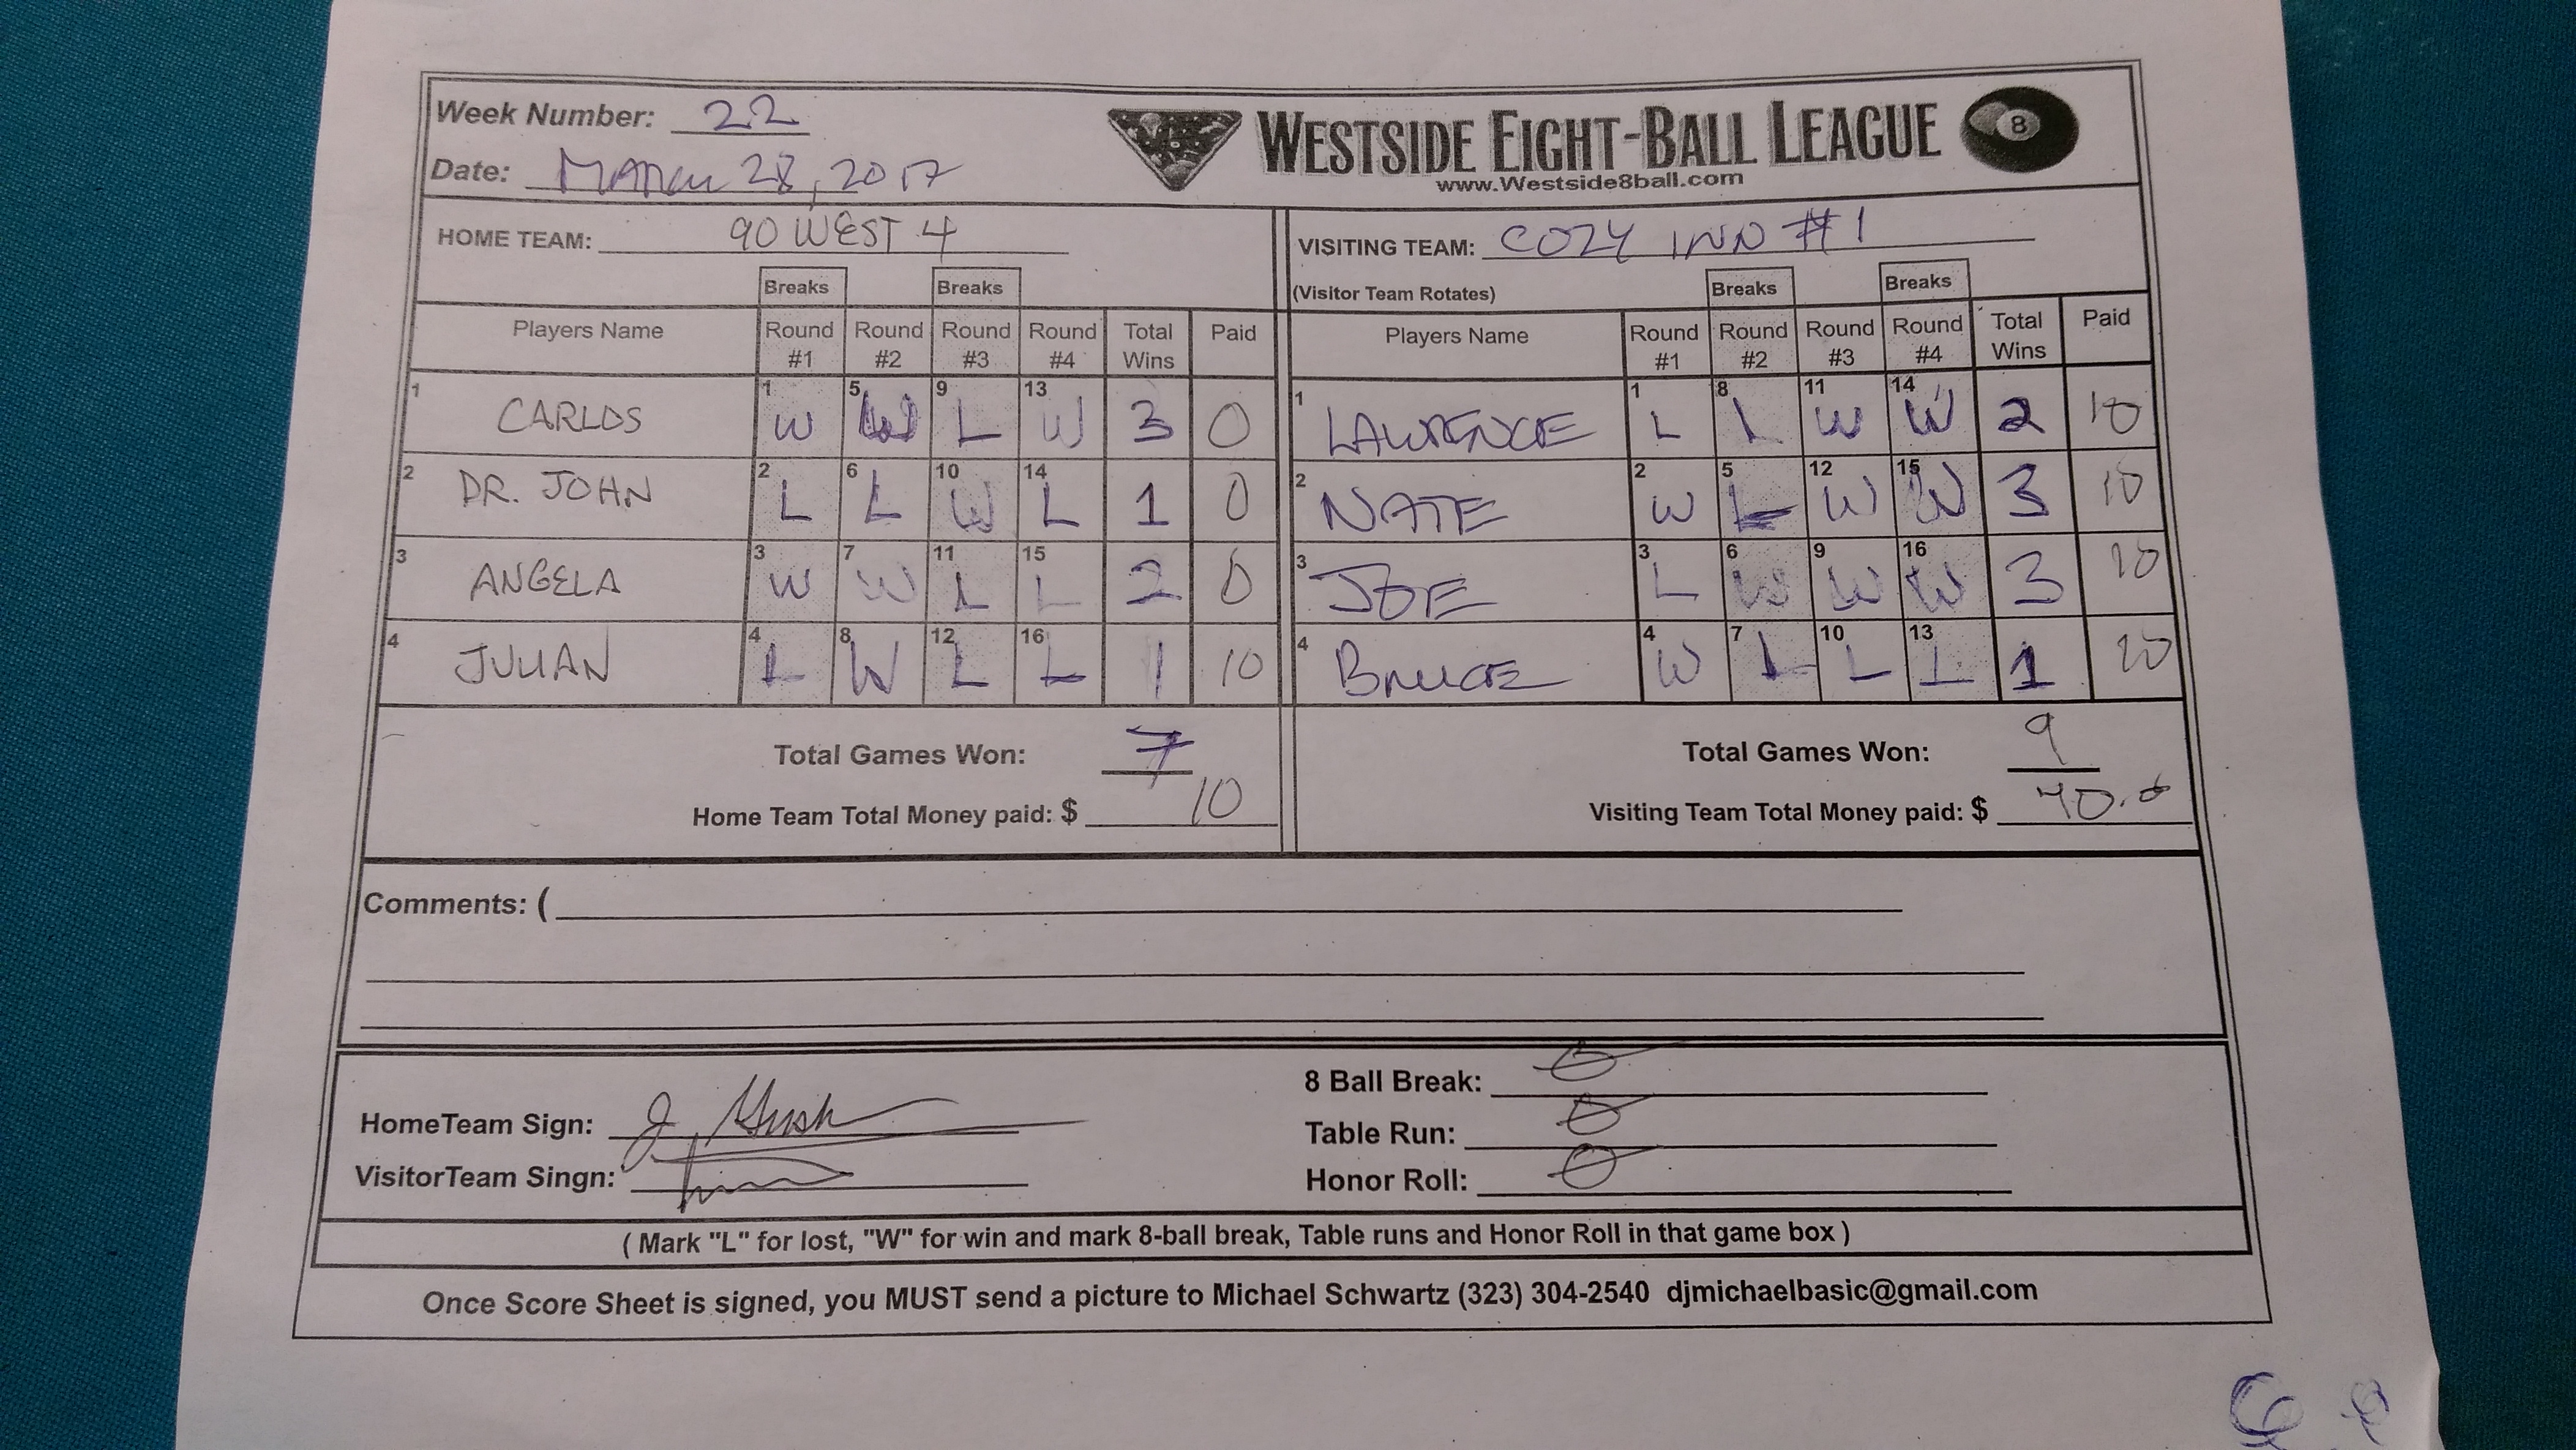 Week Number: 22
Date: MARCH 28, 2017
WESTSIDE EIGHT-BALL LEAGUE 8
www.Westside8ball.com
HOME TEAM: 90 WEST 4
VISITING TEAM: COZY INN #1
(Visitor Team Rotates)
Breaks Breaks Breaks Breaks
Players Name Round #1 Round #2 Round #3 Round #4 Total Wins Paid Players Name Round #1 Round #2 Round #3 Round #4 Total Wins Paid
1 CARLOS 1 W 5 W 9 L 13 W 3 0 1 LAWRENCE 1 L 8 L 11 W 14 W 2 10
2 DR. JOHN 2 L 6 L 10 W 14 L 1 0 2 NATE 2 W 5 L 12 W 15 W 3 10
3 ANGELA 3 W 7 W 11 L 15 L 2 0 3 JOE 3 L 6 W 9 W 16 W 3 10
4 JULIAN 4 L 8 W 12 L 16 L 1 10 4 BRUCE 4 W 7 L 10 L 13 L 1 10
Total Games Won: 7 Total Games Won: 9
Home Team Total Money paid: $ 10 Visiting Team Total Money paid: $ 40.0
Comments: (
8 Ball Break: 0
HomeTeam Sign:
Table Run: 0
VisitorTeam Singn:
Honor Roll: 0
( Mark "L" for lost, "W" for win and mark 8-ball break, Table runs and Honor Roll in that game box )
Once Score Sheet is signed, you MUST send a picture to Michael Schwartz (323) 304-2540 djmichaelbasic@gmail.com